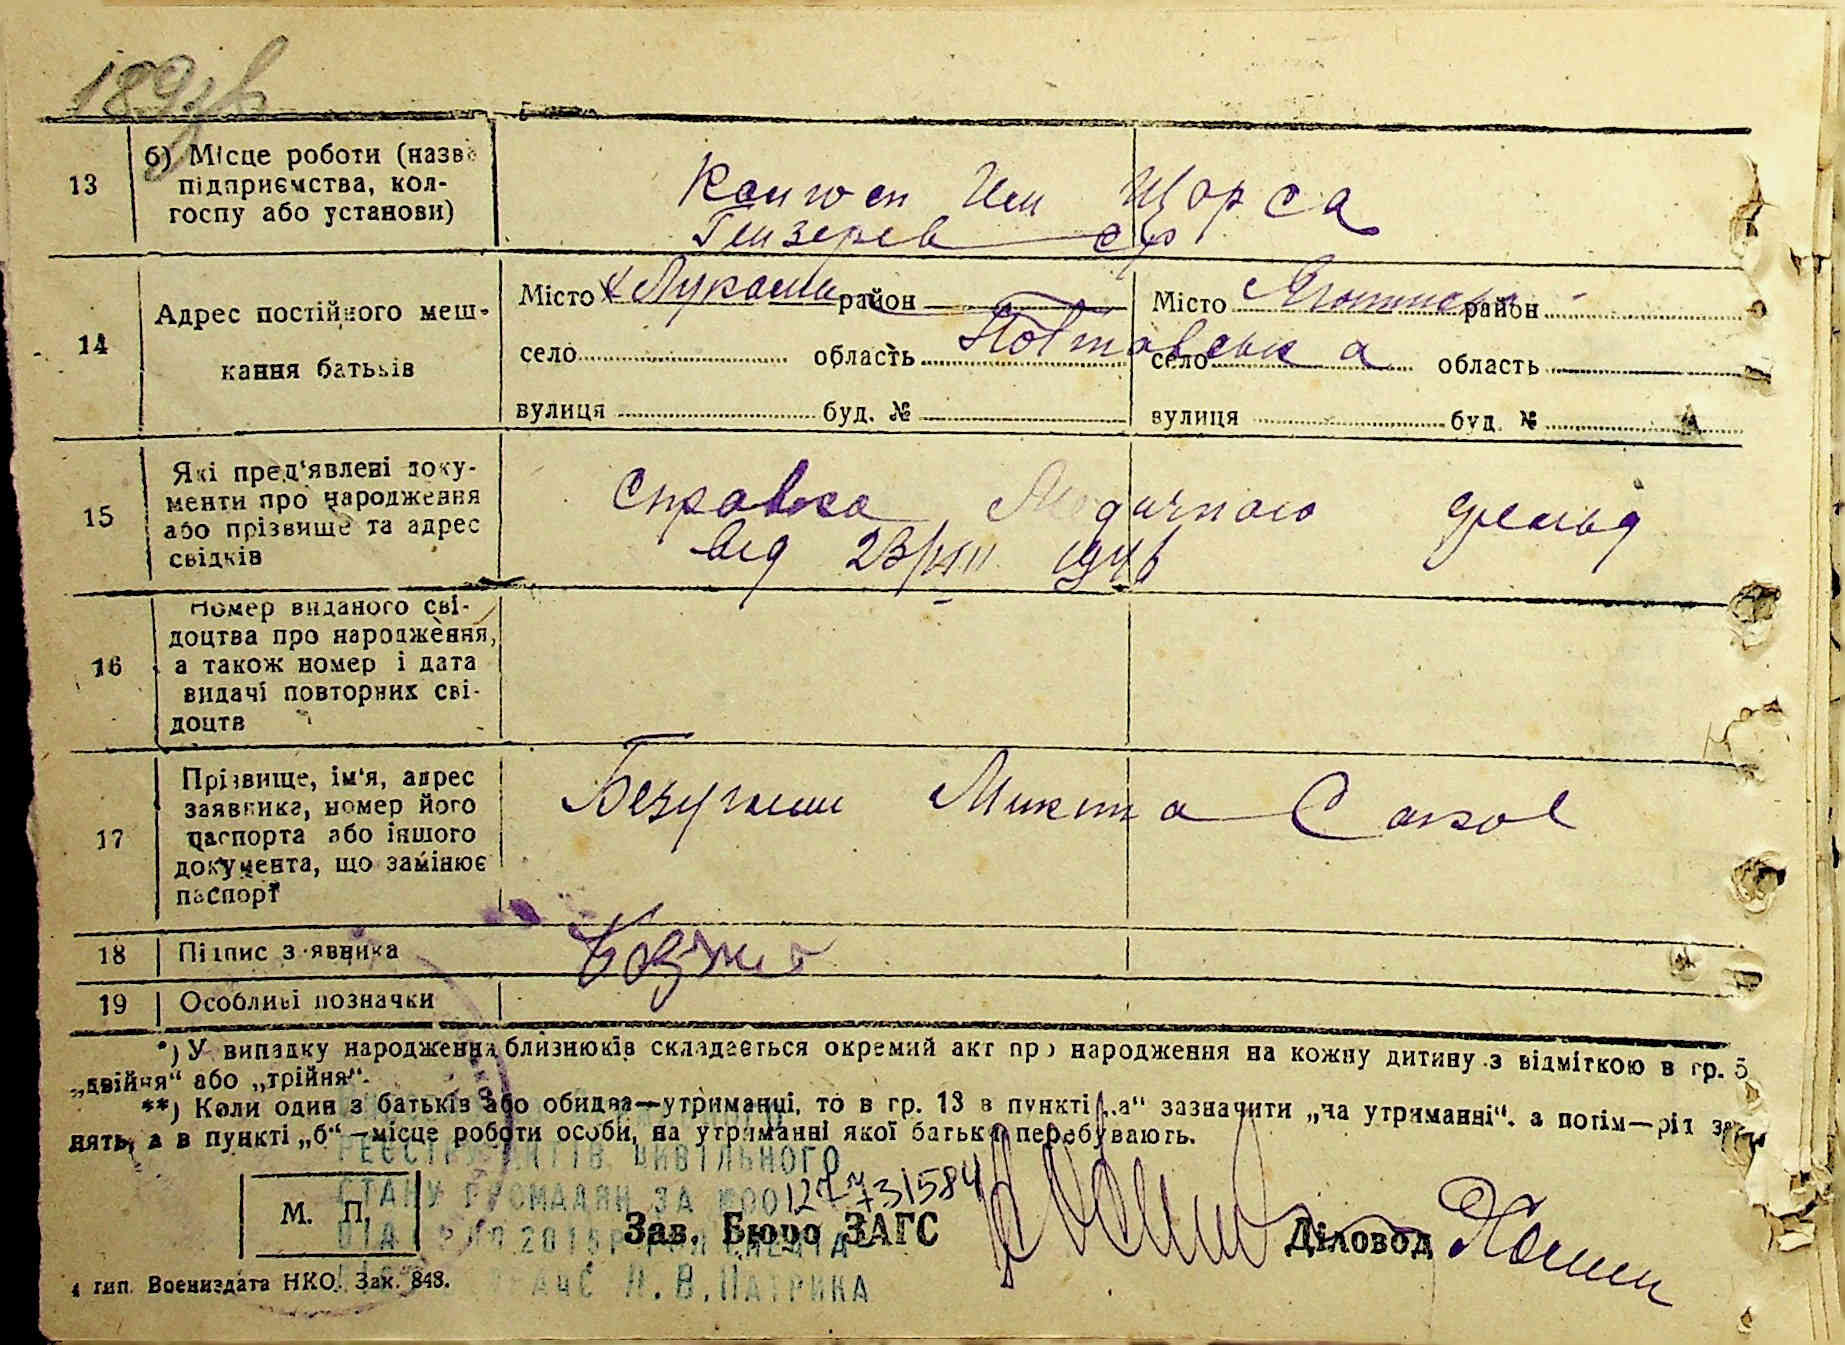 189зв
13 б) Місце роботи (назва підприємства, колгоспу або установи)
Колгосп Ім Щорса
14 Адрес постійного мешкання батьків
Місто х Лукаши район
Місто Яготинськ район
село область Полтавська
село область
вулиця буд. №
вулиця буд. №
15 Які пред'явлені документи про народження або прізвище та адрес свідків
Справка Медичного фельд
від 23/VIII 1946
16 Номер виданого свідоцтва про народження, а також номер і дата видачі повторних свідоцтв
17 Прізвище, ім'я, адрес заявника, номер його паспорта або іншого документа, що замінює паспорт
Безуглий Микита Саков
18 Підпис заявника
19 Особливі позначки
*) У випадку народження близнюків складається окремий акт про народження на кожну дитину з відміткою в гр. 5
„двійня“ або „трійня“.
**) Коли один з батьків або обидва—утриманці, то в гр. 13 в пункті „а“ зазначити „на утриманні“, а потім—рід за-
нять, а в пункті „б“—місце роботи особи, на утриманні якої батьки перебувають.
РЕЄСТРУ АКТІВ ЦИВІЛЬНОГО
СТАНУ ГРОМАДЯН ЗА №00127731584
М. П.
Зав. Бюро ЗАГС
Діловод
ВІД 2015Р
Н.В.ПАТРИКА
4 тип. Воениздата НКО. Зак. 848.